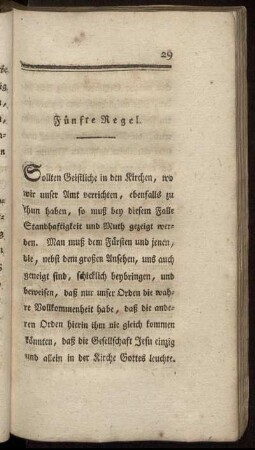 29
Fünfte Regel.
Sollten Geistliche in den Kirchen, wo
wir unser Amt verrichten, ebenfalls zu
thun haben, so muß bey diesem Falle
Standhaftigkeit und Muth gezeigt wer-
den. Man muß dem Fürsten und jenen,
die, nebst dem großen Ansehen, uns auch
geneigt sind, schicklich beybringen, und
beweisen, daß nur unser Orden die wah-
re Vollkommenheit habe, daß die ande-
ren Orden hierin ihm nie gleich kommen
könnten, daß die Gesellschaft Jesu einzig
und allein in der Kirche Gottes leuchte.